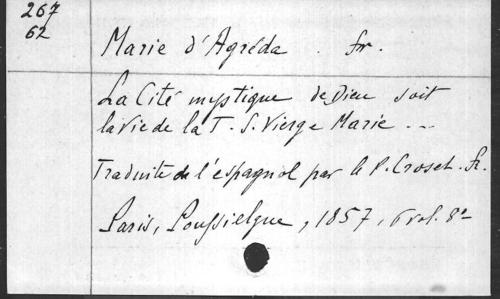 267
62
Marie d'Agréda . fr.
La Cité mystique de Dieu soit
la vie de la T. S. Vierge Marie ...
Traduite de l'espagnol par le P. Croset. fr.
Paris, Poussielgue, 1857, 6 vol. 8º